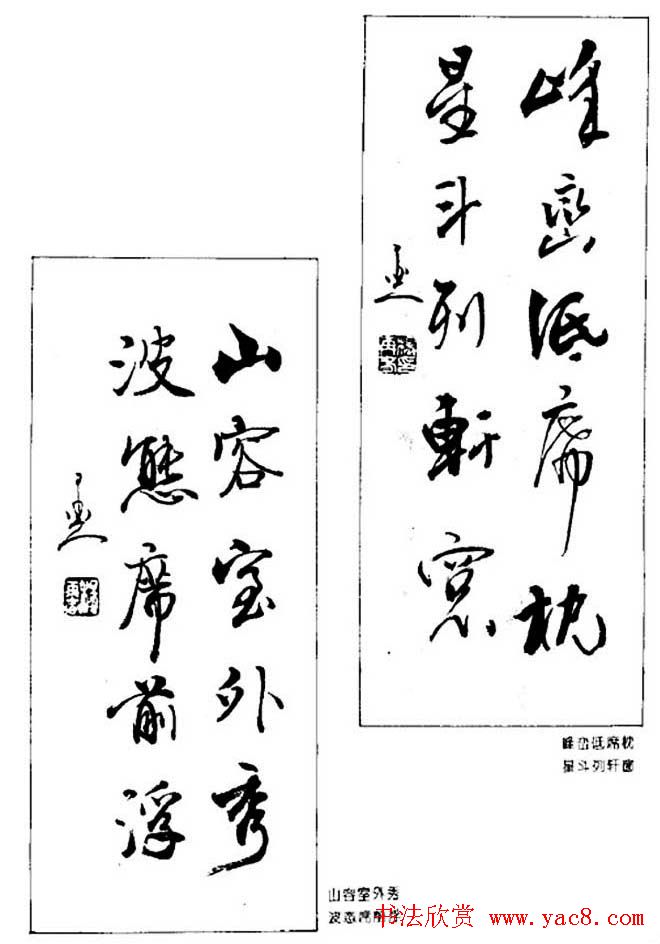 峰峦低席枕
星斗列軒窓
峰峦低席枕
星斗列轩窗
山容室外秀
波態席前浮
山容室外秀
波态席前浮
书法欣赏 www.yac8.com